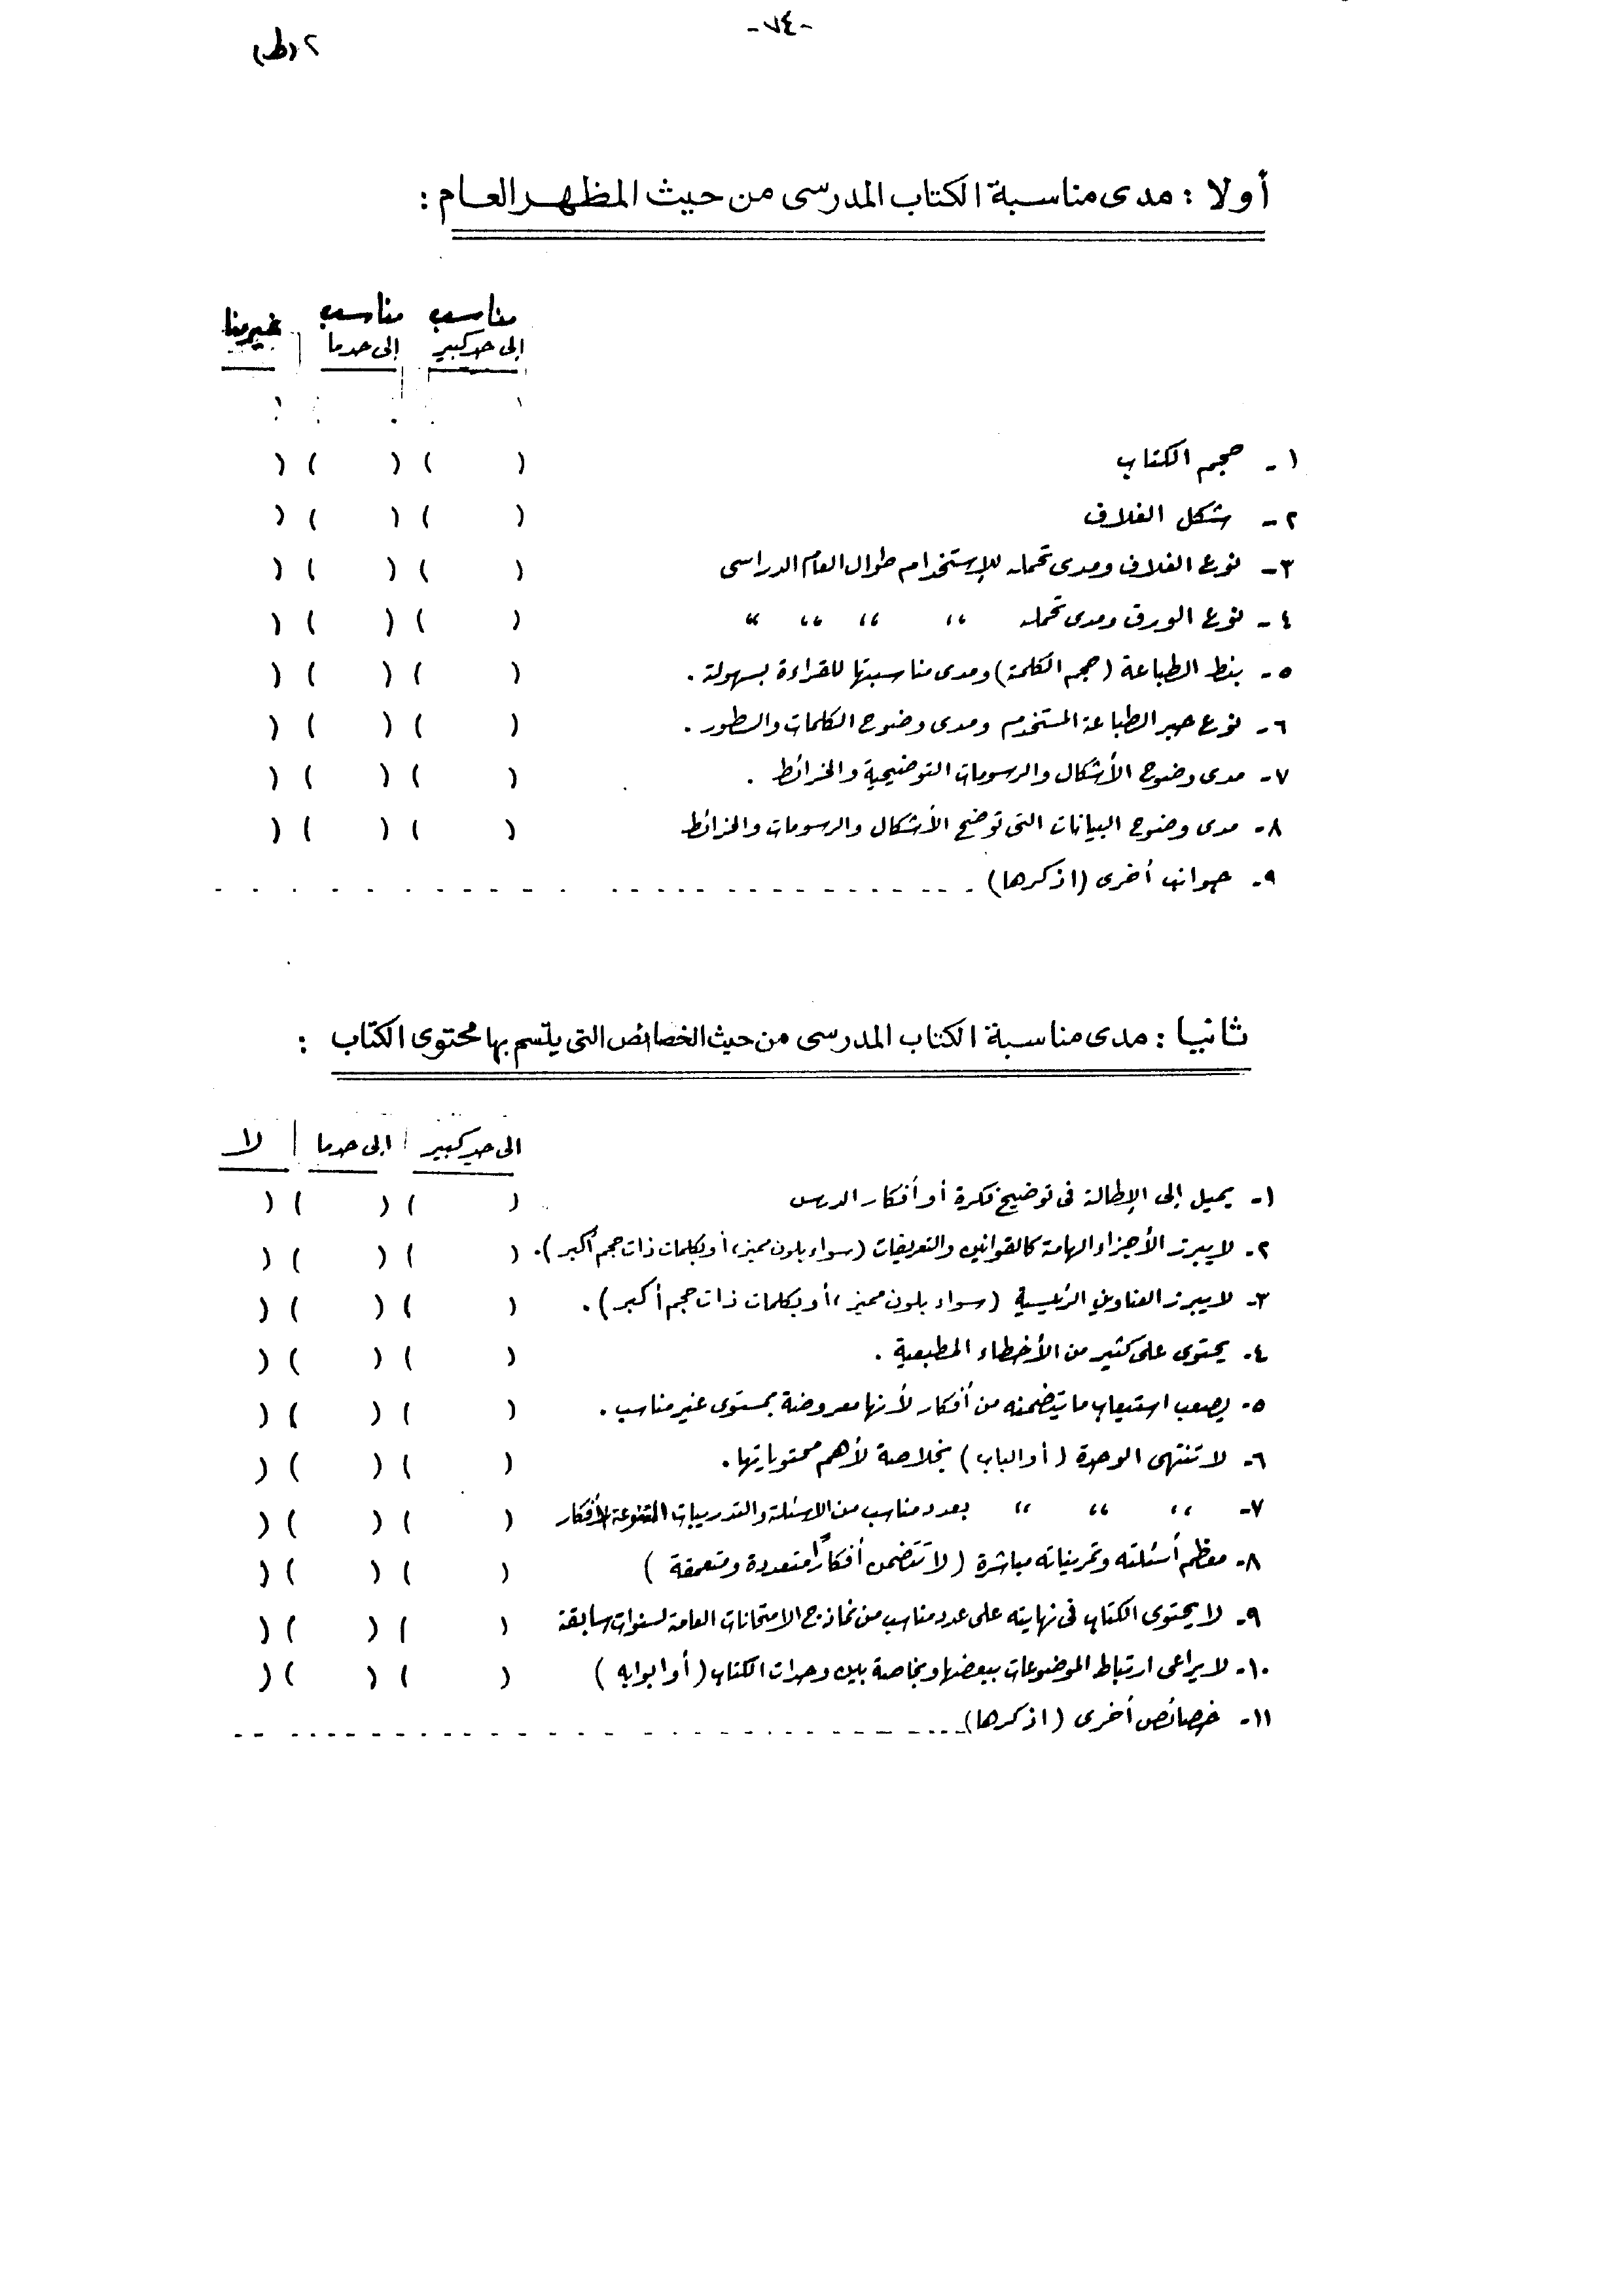 -٧٤-
٢ (ط)
أولا : مدى مناسبة الكتاب المدرسى من حيث المظهر العام :
مناسب مناسب غير منا
إلى حد كبير إلى حد ما
١- حجم الكتاب ( ) ( ) (
٢- شكل الغلاف ( ) ( ) (
٣- نوع الغلاف ومدى تحمله للإستخدام طوال العام الدراسى ( ) ( ) (
٤- نوع الورق ومدى تحمله ،، ،، ،، ،، ( ) ( ) (
٥- بنط الطباعة (حجم الكلمة) ومدى مناسبتها للقراءة بسهولة . ( ) ( ) (
٦- نوع حبر الطباعة المستخدم ومدى وضوح الكلمات والسطور . ( ) ( ) (
٧- مدى وضوح الأشكال والرسومات التوضيحية والخرائط . ( ) ( ) (
٨- مدى وضوح البيانات التى توضح الأشكال والرسومات والخرائط ( ) ( ) (
٩- جوانب أخرى (اذكرها) - - - - - - - - - - - - - - - -
ثانيا : مدى مناسبة الكتاب المدرسى من حيث الخصائص التى يتسم بها محتوى الكتاب :
الى حد كبير | الى حد ما | لا
١- يميل إلى الإطالة فى توضيح فكرة أو أفكار الدرس ( ) ( ) (
٢- لا يبرز الأجزاء الهامة كالقوانين والتعريفات (سواء بلون مميز، أو بكلمات ذات حجم أكبر). ( ) ( ) (
٣- لا يبرز العناوين الرئيسية (سواء بلون مميز، أو بكلمات ذات حجم أكبر). ( ) ( ) (
٤- يحتوى على كثير من الأخطاء المطبعية . ( ) ( ) (
٥- يصعب استيعاب ما يتضمنه من أفكار لأنها معروضة بمستوى غير مناسب . ( ) ( ) (
٦- لا تنتهى الوحدة (أو الباب) بخلاصة لأهم محتوياتها . ( ) ( ) (
٧- ،، ،، ،، بعدد مناسب من الاسئلة والتدريبات المتنوعة الأفكار ( ) ( ) (
٨- معظم أسئلته وتمريناته مباشرة (لا تتضمن أفكارًا متعددة ومتعمقة) ( ) ( ) (
٩- لا يحتوى الكتاب فى نهايته على عدد مناسب من نماذج الامتحانات العامة لسنوات سابقة ( ) ( ) (
١٠- لا يراعى ارتباط الموضوعات ببعضها وبخاصة بين وحدات الكتاب (أو ابوابه) ( ) ( ) (
١١- خصائص أخرى (اذكرها) - - - - - - - - - - - - - - - -